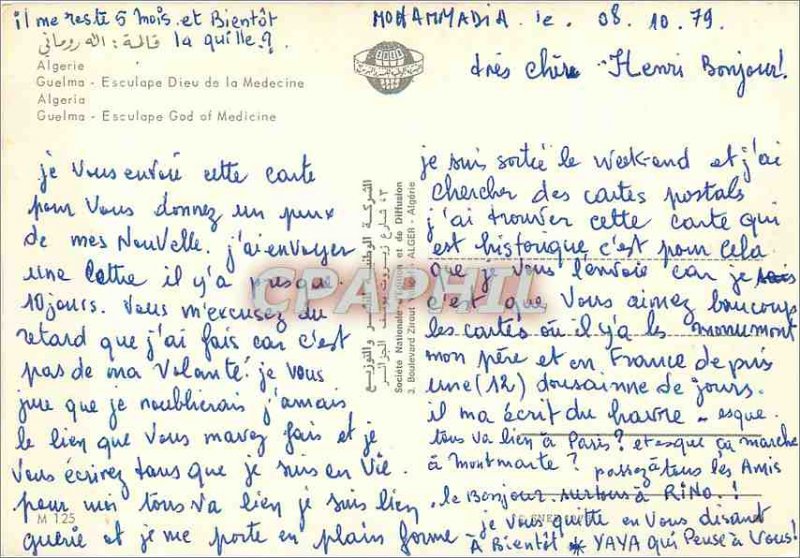 il me reste 5 mois. et Bientôt
la quille.?
قالمة: اله روماني
Algerie
Guelma - Esculape Dieu de la Medecine
Algeria
Guelma - Esculape God of Medicine
MOHAMMADIA. le. 08. 10. 79.
trés chère Henri Bonjour!
je vous envoie cette carte
pour vous donnez un peux
de mes Nouvelle. j'ai envoyer
une lettre il y'a presque
10 jours. vous m'excusez du
retard que j'ai fais car c'est
pas de ma volonté! je vous
jure que je noublierais j'amais
le bien que vous mavez fais et je
vous écrirez tans que je suis en Vie.
pour moi tous va bien je suis bien
guérie et je me porte en plain forme
M 125
الشركة الوطنية للنشر والتوزيع
٣، شارع زيروت يوسف الجزائر
Société Nationale d'Edition et de Diffusion
3, Boulevard Zirout ALGER - Algérie
CPAPHIL
je suis sortié le week-end et j'ai
chercher des cartes postals
j'ai trouver cette carte qui
est historique c'est pour cela
que je vous l'envoie car je sais
c'est que vous aimez beaucoups
les cartes où il y'a les monumont
mon père et en France depuis
une (12) dousainne de jours.
il ma écrit du havre - esque.
tous va bien à Paris? et esque ça marche
à montmarte? passez à tous les Amis
le Bonjour surtous à RINO.!
je vous quitte en vous disant
À Bientôt * YAYA qui Pense à Vous!